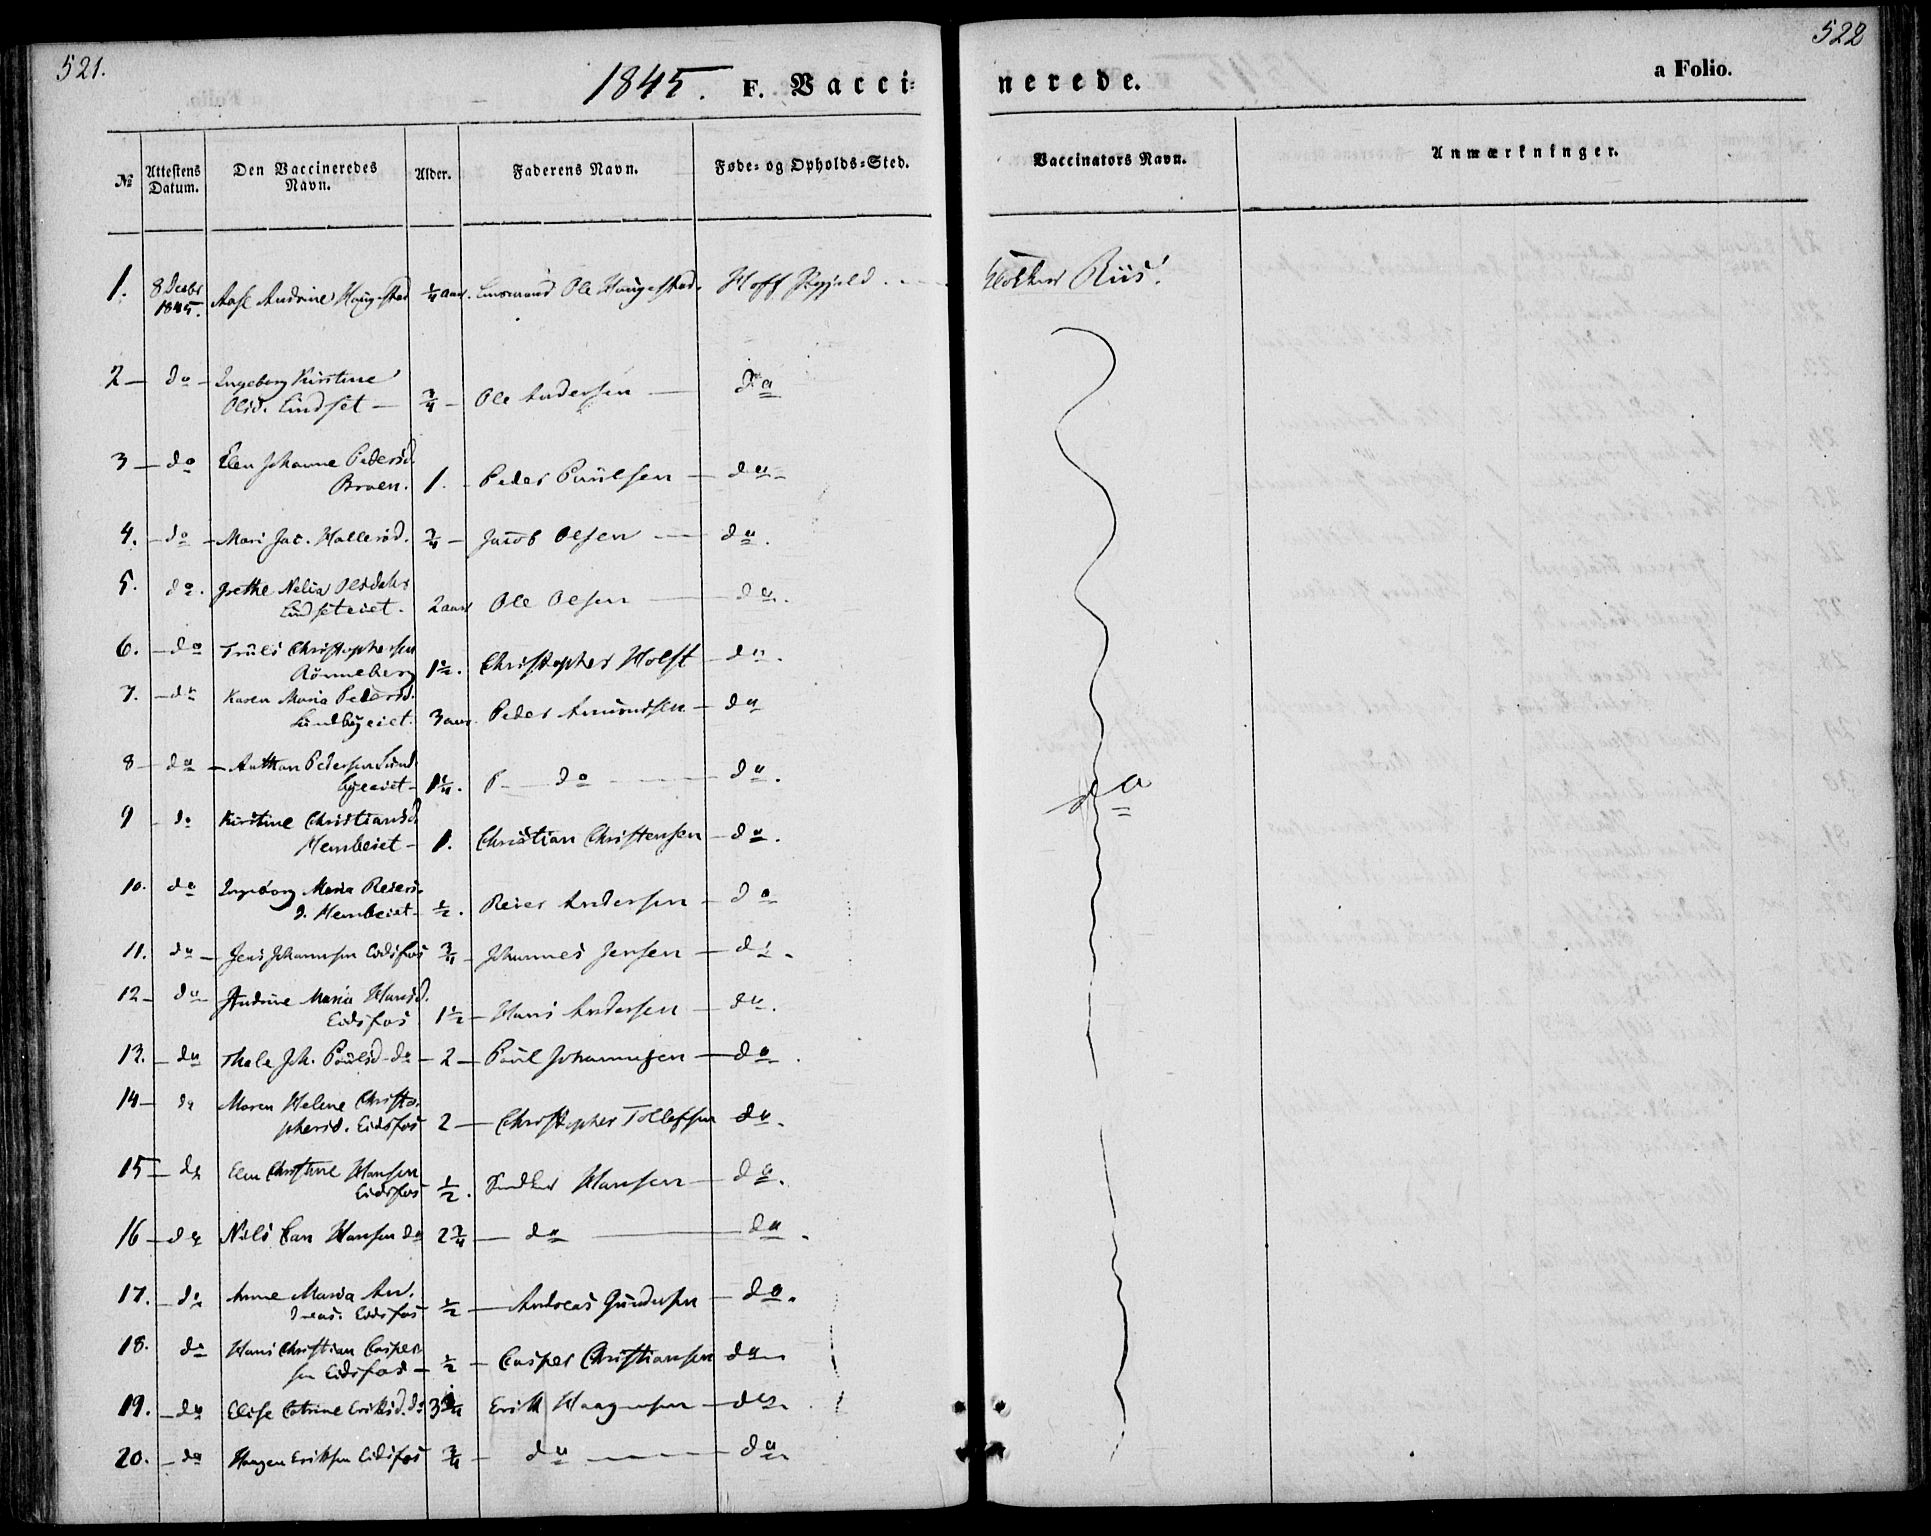 521.
522
1845. F. Vacci-
nerede.
a Folio.
№
Attestens Datum.
Den Vaccineredes Navn.
Alder.
Faderens Navn.
Føde- og Opholds-Sted.
Vaccinators Navn.
Anmærkninger.
1. 8 Decbr 1845. Aase Andrine Haugestad ¼ aar. Ole Haugestad. Hoff Riis
2 — do — Ingeborg Kirstine
Olsd. Lindset — ¾ — Ole Andersen — do
3 — do Elen Johanne Pedersd.
Braen. 1. Peder Poulsen — do —
4. — do — Mari Jac. Hallersd. ¾ — Jacob Olsen — do.
5. do. Grethe Olsdatr
Lindseteiet. 2 aar Ole Olsen — do.
6. — do Truls Christophersen
Rönneberg 1½. Christopher Holst — do.
7. — do Karen Maria Pedersd.
Sundbyeiet. 3 aar. Peder Amundsen — do
8 — do — Anthon Pedersen Sund
byeeiet — 1¼. P — do — do.
9 do Kirstine Christiansd.
Hembeiet — 1. Christian Christensen — do.
10. do Ingeborg Maria Reiers
d. Hembeiet — ½. Reier Andersen — do
11. do — Jens Johannsen Eidsfos ¾ — Johannes Jensen — do.
12 — do — Andrine Maria Hansd.
Eidsfos 1½ — Hans Andersen — do.
13. — do Thale Joh. Poulsd. do — 2 — Poul Johannesen — do.
14 — do Maren Helene Christo-
phersd. Eidsfos 2 — Christopher Tollefsen do.
15 — do Elen Christine Hansen
Eidsfos ½. Hansen — do.
16 — do Nils Carl Hansen do 2¾ — do — do.
17. — do Anne Maria An-
dreas. Eidsfos ½ — Andreas Gundersen — do.
18. do Hans Christian Casper-
sen Eidsfos — ½ — Casper Christiansen do
19. — do Elise Catrine Eriksd. do Erik Haagensen — do.
20. — do Haagen Eriksen Eidsfos ¾ — do — do
do